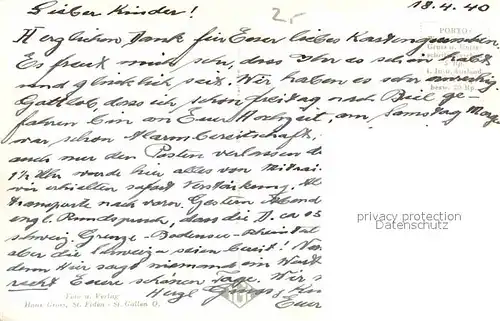 Lieber Kinder! 18.4.40
2.-
Herzlichen Dank für Euer liebes Kartengrüsschen.
Es freut mich sehr, dass Ihr es schön habt
und glücklich seit. Wir haben es sehr
Gottlob, dass ich schon freitag nach Biel ge-
fahren bin an Euer Hochzeit, am Samstag Morg
war schon Alarmbereitschaft,
auch nur den Posten verlassen
1½ Uhr wurde hier alles von
wir erhielten sofort Verstärkung.
transporte nach vorn. Gestern Abend
engl. Rundspruch, dass die D. ca
schweiz. Grenze - Bodensee - Rheintal
aber die Schweiz seien bereit!
denn hier sagt niemand ein Wort
recht Euere schönen Tage. Wir
Herzl Grüsse,
Euer
PORTO
privacy protection
Foto u. Verlag:
Hans Gross, St. Fiden - St. Gallen O.